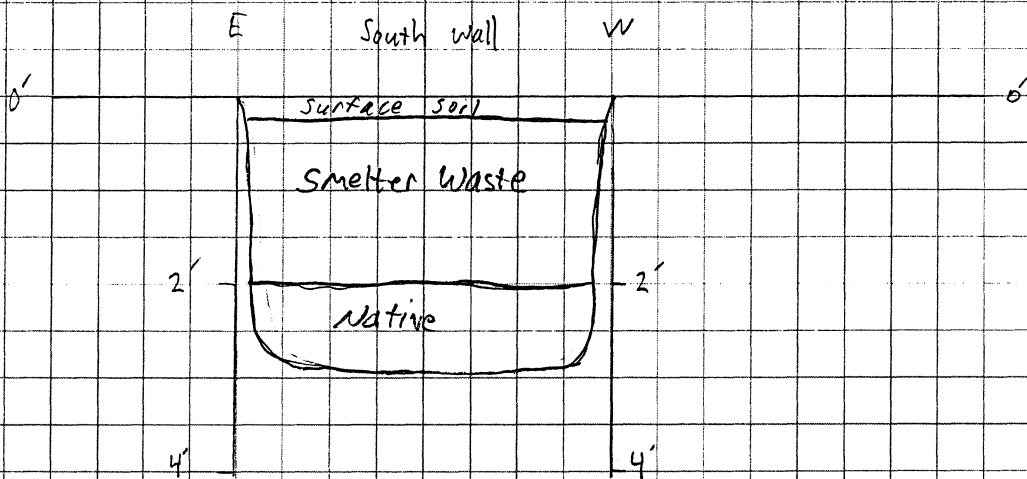 E South Wall W
0' 0'
Surface Soil
Smelter Waste
2' 2'
Native
4' 4'